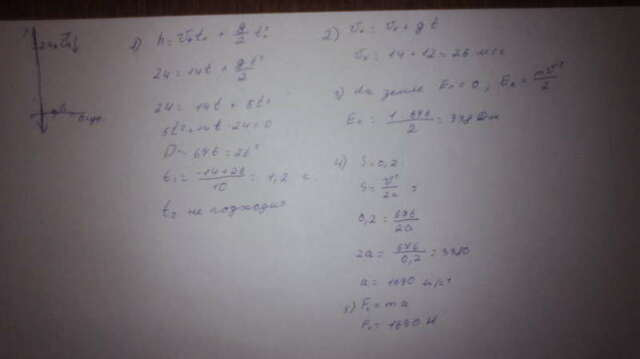 1) h = V₀t₀ + g/2 t₀²
24 = 14t + gt²/2
24 = 14t + 5t²
5t² + 14t - 24 = 0
D = 676 = 26²
t₁ = (-14+26)/10 = 1,2 с.
t₂ не подходит
2) Vₓ = V₀ + gt
Vₓ = 14 + 12 = 26 м/с
3) На земле Eп = 0, Eк = mV²/2
Eк = 1·676/2 = 338 Дж
4) S = 0,2
S = V²/2a
0,2 = 676/2a
2a = 676/0,2 = 3380
a = 1690 м/с²
5) Fc = ma
Fc = 1690 Н